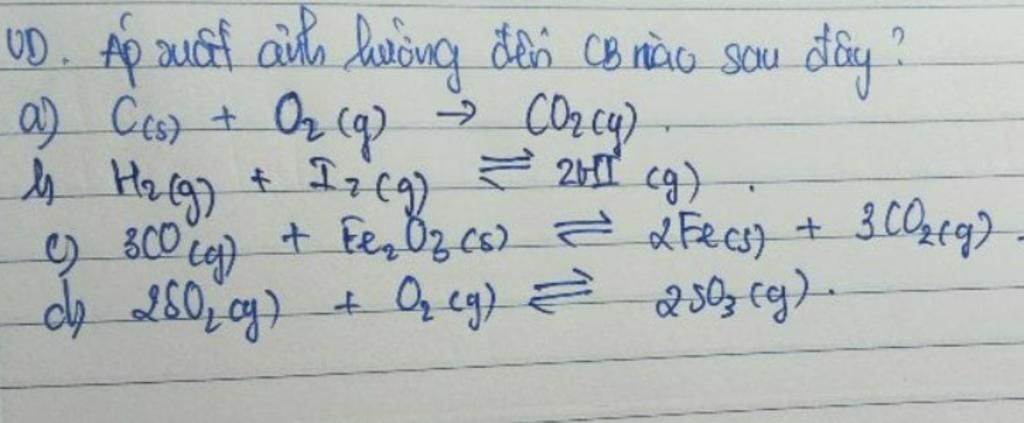 VD. Áp suất ảnh hưởng đến CB nào sau đây?
a) C(s) + O₂(g) → CO₂(g).
b) H₂(g) + I₂(g) ⇌ 2HI (g).
c) 3CO(g) + Fe₂O₃(s) ⇌ 2Fe(s) + 3CO₂(g).
d) 2SO₂(g) + O₂(g) ⇌ 2SO₃(g).